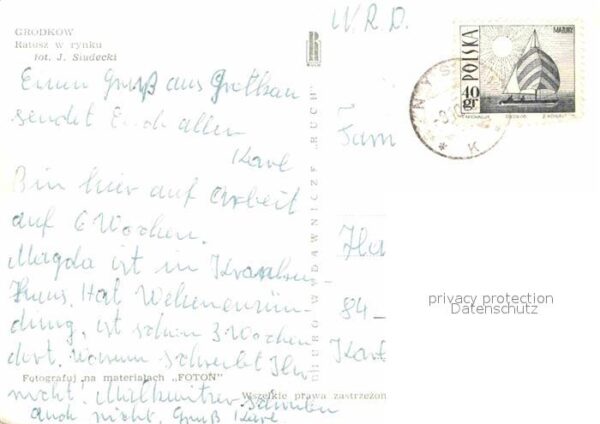 GRODKOW
Ratusz w rynku
fot. J. Siudecki
Einen Gruß aus Grotkau
sendet Euch allen
Karl
Bin hier auf Arbeit
auf 6 Wochen.
Magda ist in Kranken
Haus. Hat
ist schon 3 Wochen
dort. Warum schreibt Ihr
nicht!
auch nicht. Gruß Karl.
Fotografuj na materiałach „FOTON"
BIURO WYDAWNICZE „RUCH"
Wszelkie prawa zastrzeżon
Fam
84-
POLSKA
MAZURY
40
gr
NYS
K
privacy protection
Datenschutz